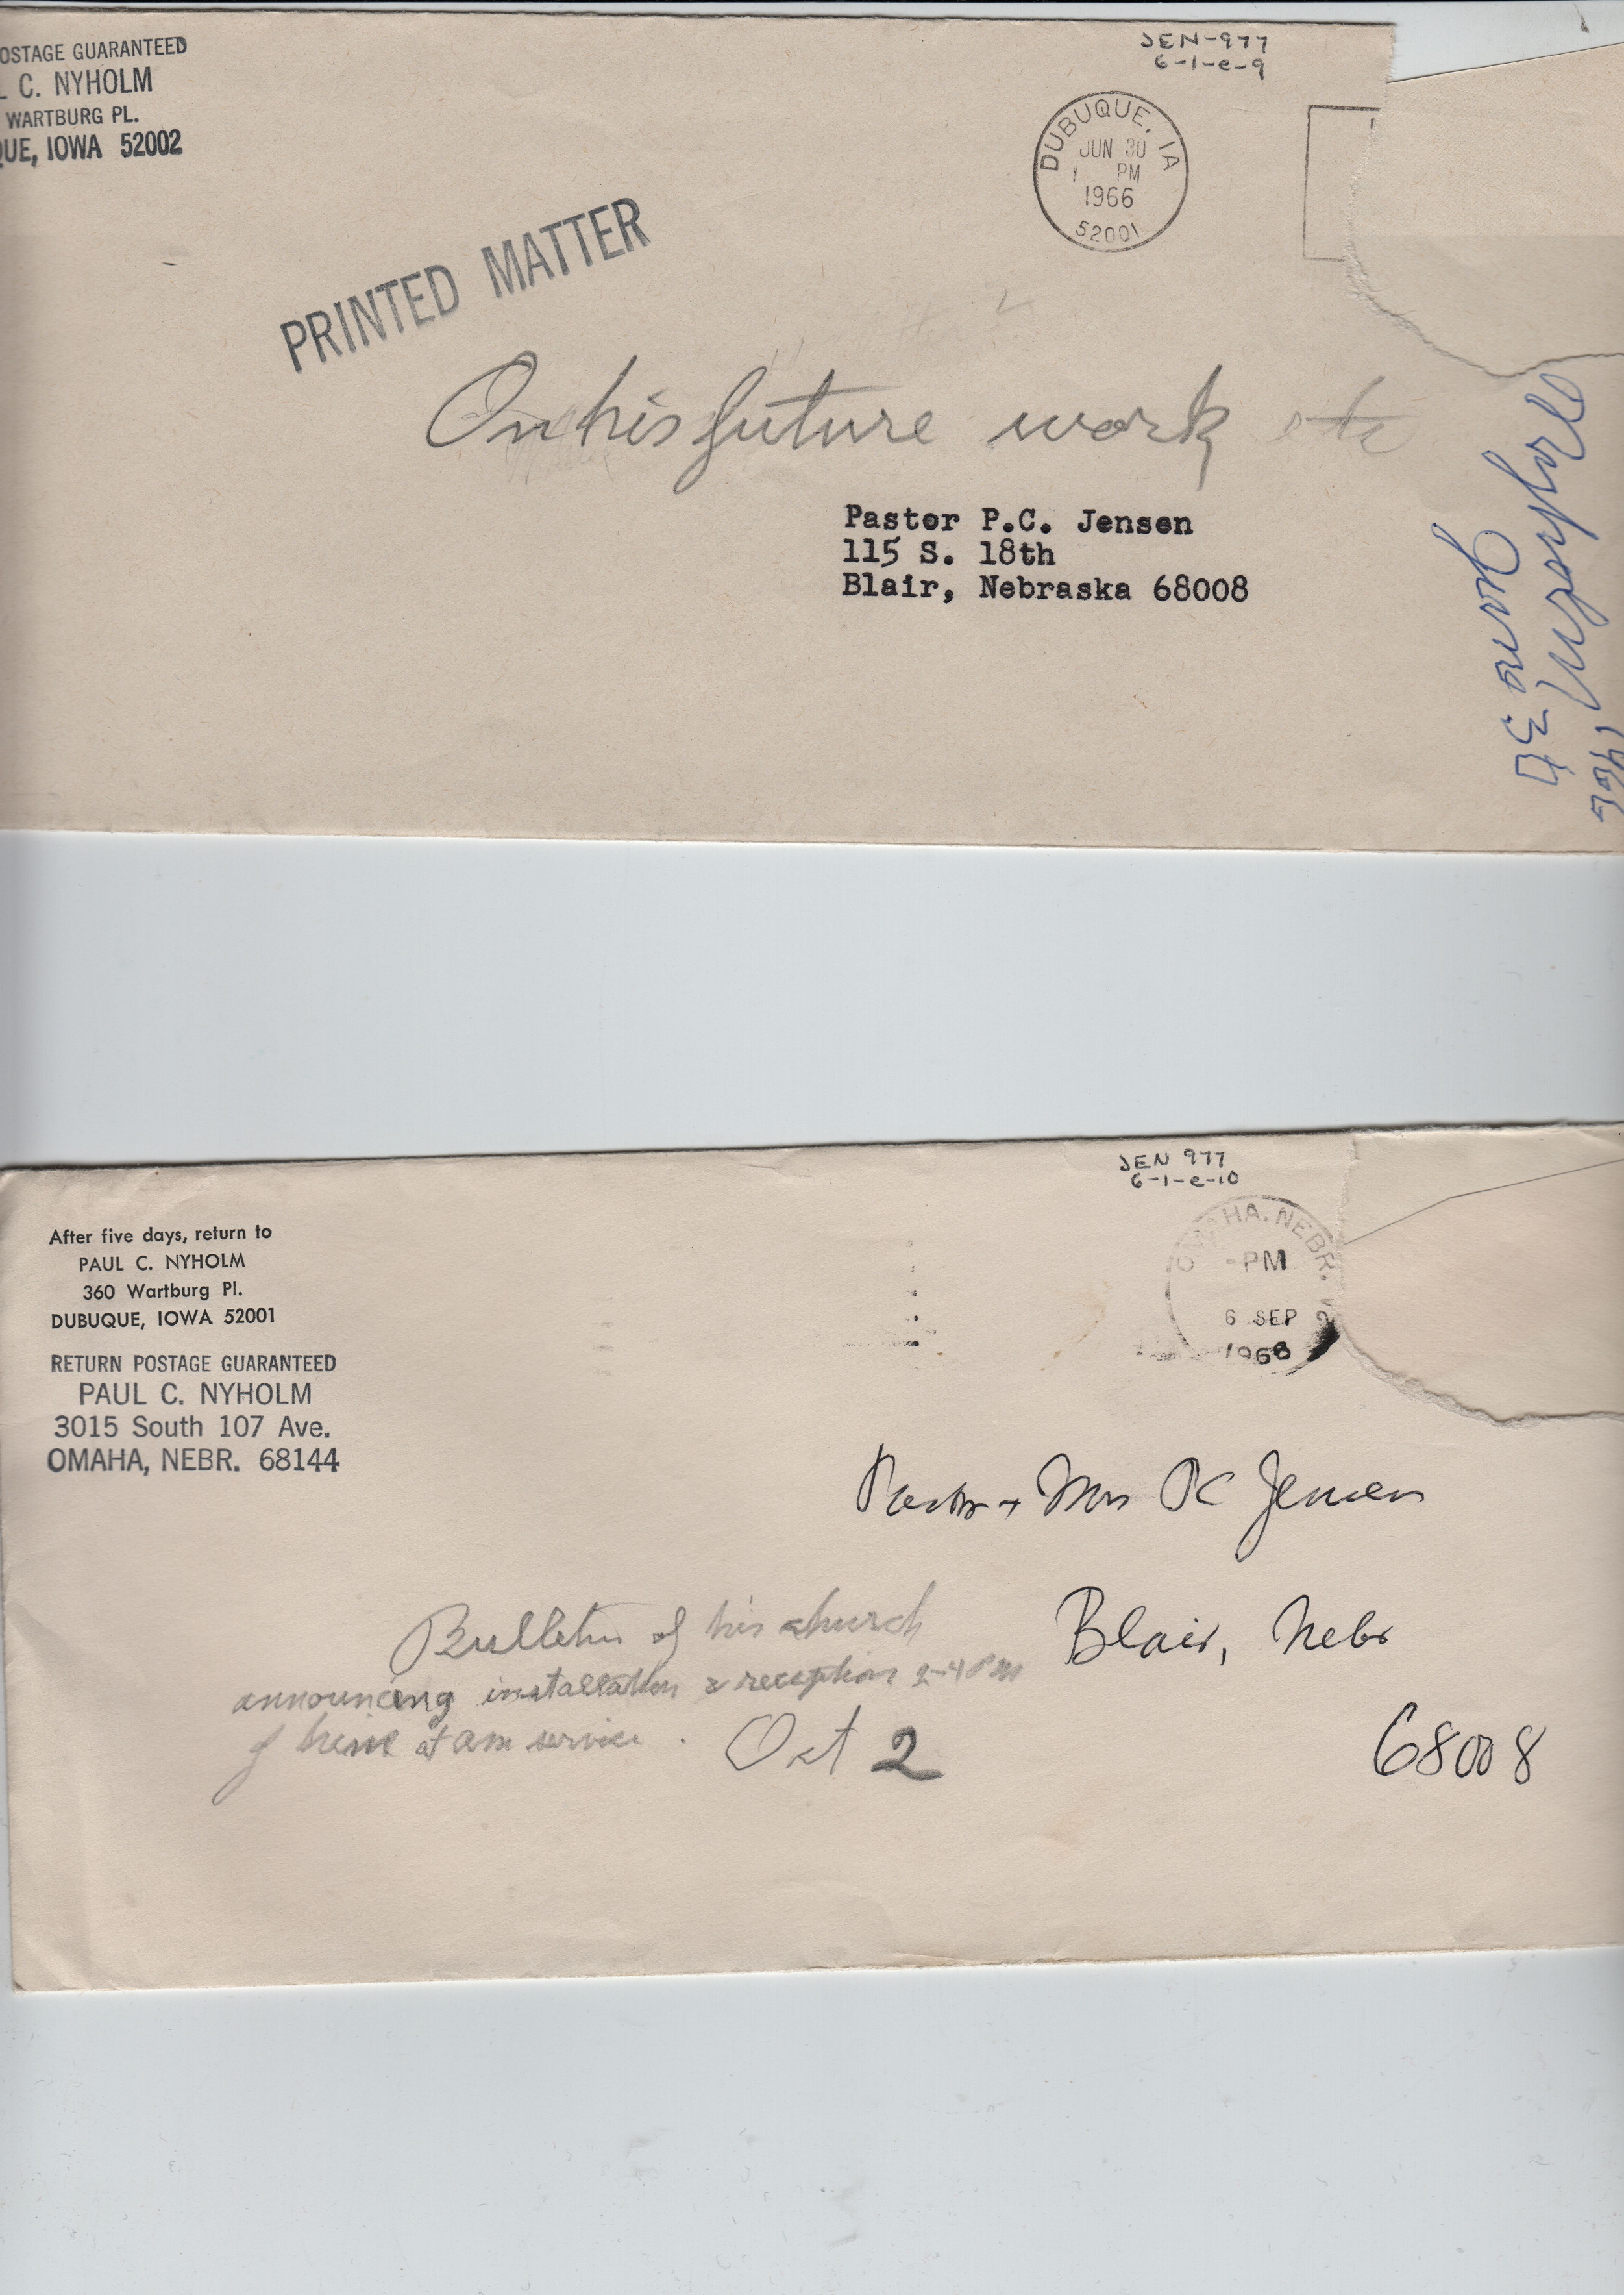 OSTAGE GUARANTEED
L C. NYHOLM
WARTBURG PL.
QUE, IOWA 52002
JEN-977
6-1-e-9
DUBUQUE, IA
JUN 30
1 PM
1966
52001
PRINTED MATTER
On his future work etc
Pastor P.C. Jensen
115 S. 18th
Blair, Nebraska 68008
Nyholm
June 30
1966
JEN 977
6-1-e-10
OMAHA, NEBR.
-PM
6 SEP
1966
After five days, return to
PAUL C. NYHOLM
360 Wartburg Pl.
DUBUQUE, IOWA 52001
RETURN POSTAGE GUARANTEED
PAUL C. NYHOLM
3015 South 107 Ave.
OMAHA, NEBR. 68144
Pastor + Mrs PC Jensen
Blair, Nebr
68008
Bulletin of his church
announcing installation & reception 2-4 PM
of at am service.
Oct 2